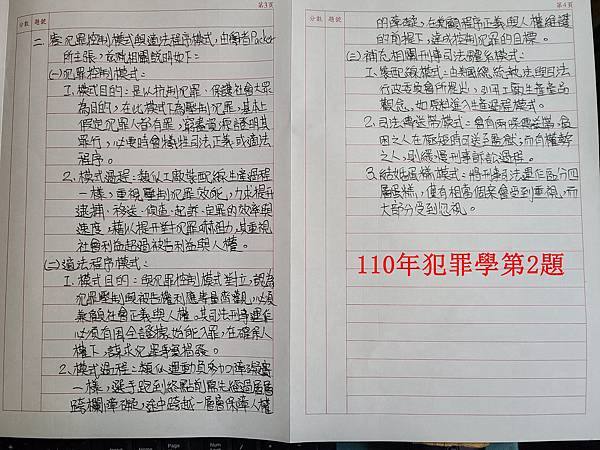 第3頁
分數 題號
二、案犯罪控制模式與適法程序模式,由學者Packer
所主張,茲就相關說明如下:
(一)犯罪控制模式:
1、模式目的:是以抗制犯罪、保護社會大眾
為目的,在此模式下為壓制犯罪,基本上
假定犯罪人都有罪,窮盡資源證明其
罪行,必要時會犧牲司法正義或適法
程序。
2、模式過程:類似工廠裝配線生產過程
一樣,重視壓制犯罪效能,力求提升
逮捕、移送、偵查、起訴、定罪的效率與
速度,藉以提升對犯罪嚇阻力,其重視
社會利益超過被告利益與人權。
(二)適法程序模式:
1、模式目的:與犯罪控制模式對立,認為
犯罪壓制與被告權利應等量齊觀,必須
兼顧社會正義與人權。其司法刑事運作
必須有因全證據始能入罪,在確保人
權下,謀求犯罪事實揭露。
2、模式過程:類似運動員參加障礙賽
一樣,選手跑到終點前需先經過層層
跨欄障礙,途中跨越一層層保障人權
第4頁
分數 題號
的障礙,在兼顧程序正義與人權維護
的前提下,達成控制犯罪的目標。
(三)補充相關刑事司法體系模式:
1、裝配線模式:由美國總統執法與司法
行政委員會所提出,引用工廠生產產品
觀念,如原料進入生產過程模式。
2、司法輸送帶模式:會有兩條輸送帶,貧
困之人在極短時間可送至監獄;而有權勢
之人,則緩慢刑事訴訟過程。
3、結婚蛋糕模式:將刑事司法運作區分四
層蛋糕,僅有相當個案會受到重視,而
大部分受到忽視。
110年犯罪學第2題